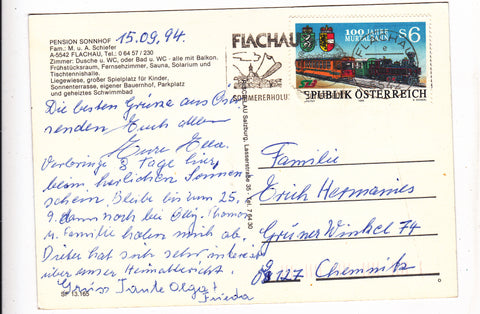 PENSION SONNHOF
Fam.: M. u. A. Schiefer
A-5542 FLACHAU, Tel.: 0 64 57 / 230
Zimmer: Dusche u. WC, oder Bad u. WC - alle mit Balkon.
Frühstücksraum, Fernsehzimmer, Sauna, Solarium und
Tischtennishalle.
Liegewiese, großer Spielplatz für Kinder,
Sonnenterrasse, eigener Bauernhof, Parkplatz
und geheiztes Schwimmbad
15.09.94.
Die besten Grüsse aus
senden Euch allen
Eure
Verbringe 8 Tage hier
beim herrlichen Sonnen
schein. Bleibe bis zum 25.
9. dann noch bei
u. Familie holen mich ab.
Dieter hat sich sehr
über unser Heimatbericht.
Gruss Tante Olga +
Frieda
SP 13.165
FLACHAU
SOMMERERHOLU
100 JAHRE
MURTALBAHN
S6
REPUBLIK ÖSTERREICH
FLACHAU
Salzburg, Lasserstraße 35
Familie
Erich Hermanies
Grüner Winkel 74
127 Chemnitz